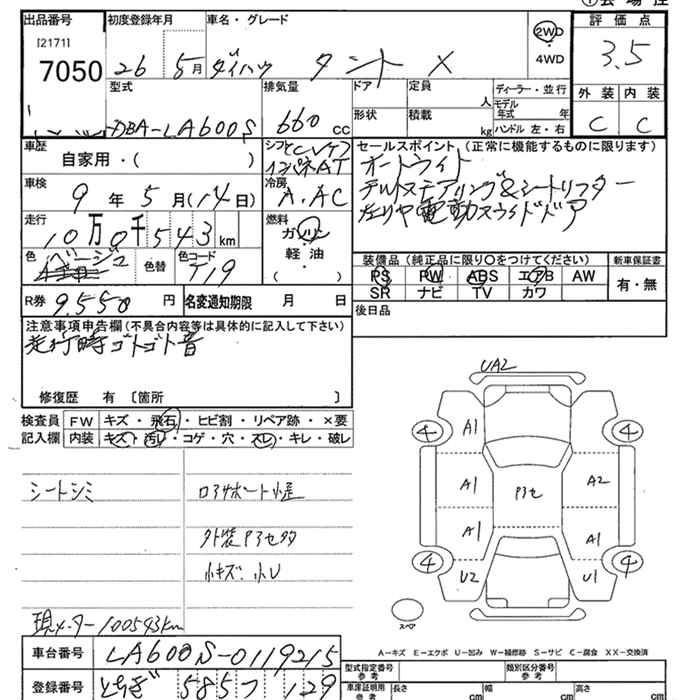 出品番号 初度登録年月 車名・グレード 評価点
[2171] 7050 26 5月 ダイハツ タント X 2WD ・ 4WD 3.5
型式 排気量 ドア 定員 人 ディーラー・並行 外装 内装
DBA-LA600S 660 cc 形状 積載 kg モデル年式 年 ハンドル 左・右 C C
車歴 自家用・( ) シフト インパネAT セールスポイント(正常に機能するものに限ります)
オートライト
車検 9年 5月(14日) 冷房 A.AC チルトステアリング&シートリフター
左リヤ電動スライドドア
走行 10万0千543km 燃料 ガソリン ・ 軽油 ( )
色 ベージュ 色替 色コード T19 装備品(純正品に限り○をつけてください) 新車保証書
PS PW ABS エアB AW 有・無
SR ナビ TV カワ
R券 9.550円 名変通知期限 月 日 後日品
注意事項申告欄(不具合内容等は具体的に記入して下さい)
走行時ゴトゴト音
修復歴 有 〔箇所 〕
検査員 FW キズ・飛石・ヒビ割・リペア跡・×要
記入欄 内装 キズ・汚レ・コゲ・穴・スレ・キレ・破レ
UA2
4 A1 4
シートシミ コアサポート小歪 A1 P3セ A2
外装P3セ多 A1 A1
小キズ、小U 4 U2 U1 4
スペア
現メーター100543km
A-キズ E-エクボ U-凹み W-補修跡 S-サビ C-腐食 XX-交換済
車台番号 LA600S-0119215 型式指定番号 参考 類別区分番号 参考
登録番号 とちぎ 585つ 129 車庫証明用 参考 長さ cm 幅 cm 高さ cm